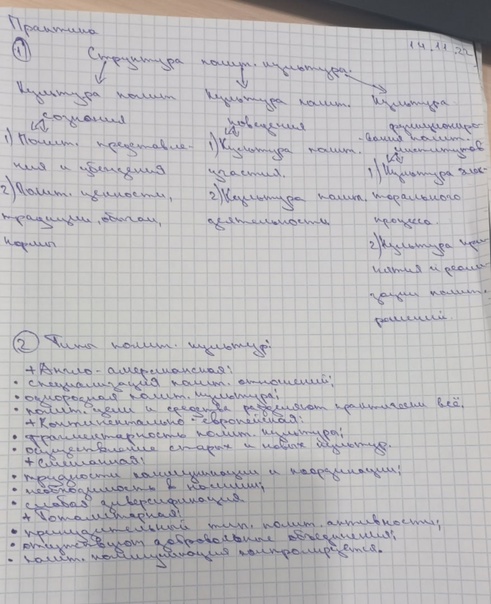 Практика
14.11.22
① Структура полит. культура.
Культура полит сознания
1) Полит. представле-
ния и убеждения
2) Полит. ценности,
традиции, обычаи,
нормы
Культура полит. поведения
1) Культура полит.
участия.
2) Культура полит.
деятельности
Культура
функциониро-
вания полит.
институтов
1) Культура элек-
торального
процесса.
2) Культура при-
нятия и реали-
зации полит.
решений.
② Типы полит. культур:
+ Англо-американская:
• специализация полит. отношений;
• однородная полит. культура;
• полит. цели и средства разделяют практически всё;
+ Континентально-европейская:
• фрагментарность полит. культуры;
• старых и новых культур.
+ Смешанная:
• трудности коммуникации и координации;
• необходимость в насилии;
• слабая диверсификация
+ Тоталитарная:
• принудительный тип полит. активности;
• отсутствуют добровольные объединения;
• полит. коммуникация контролируется.